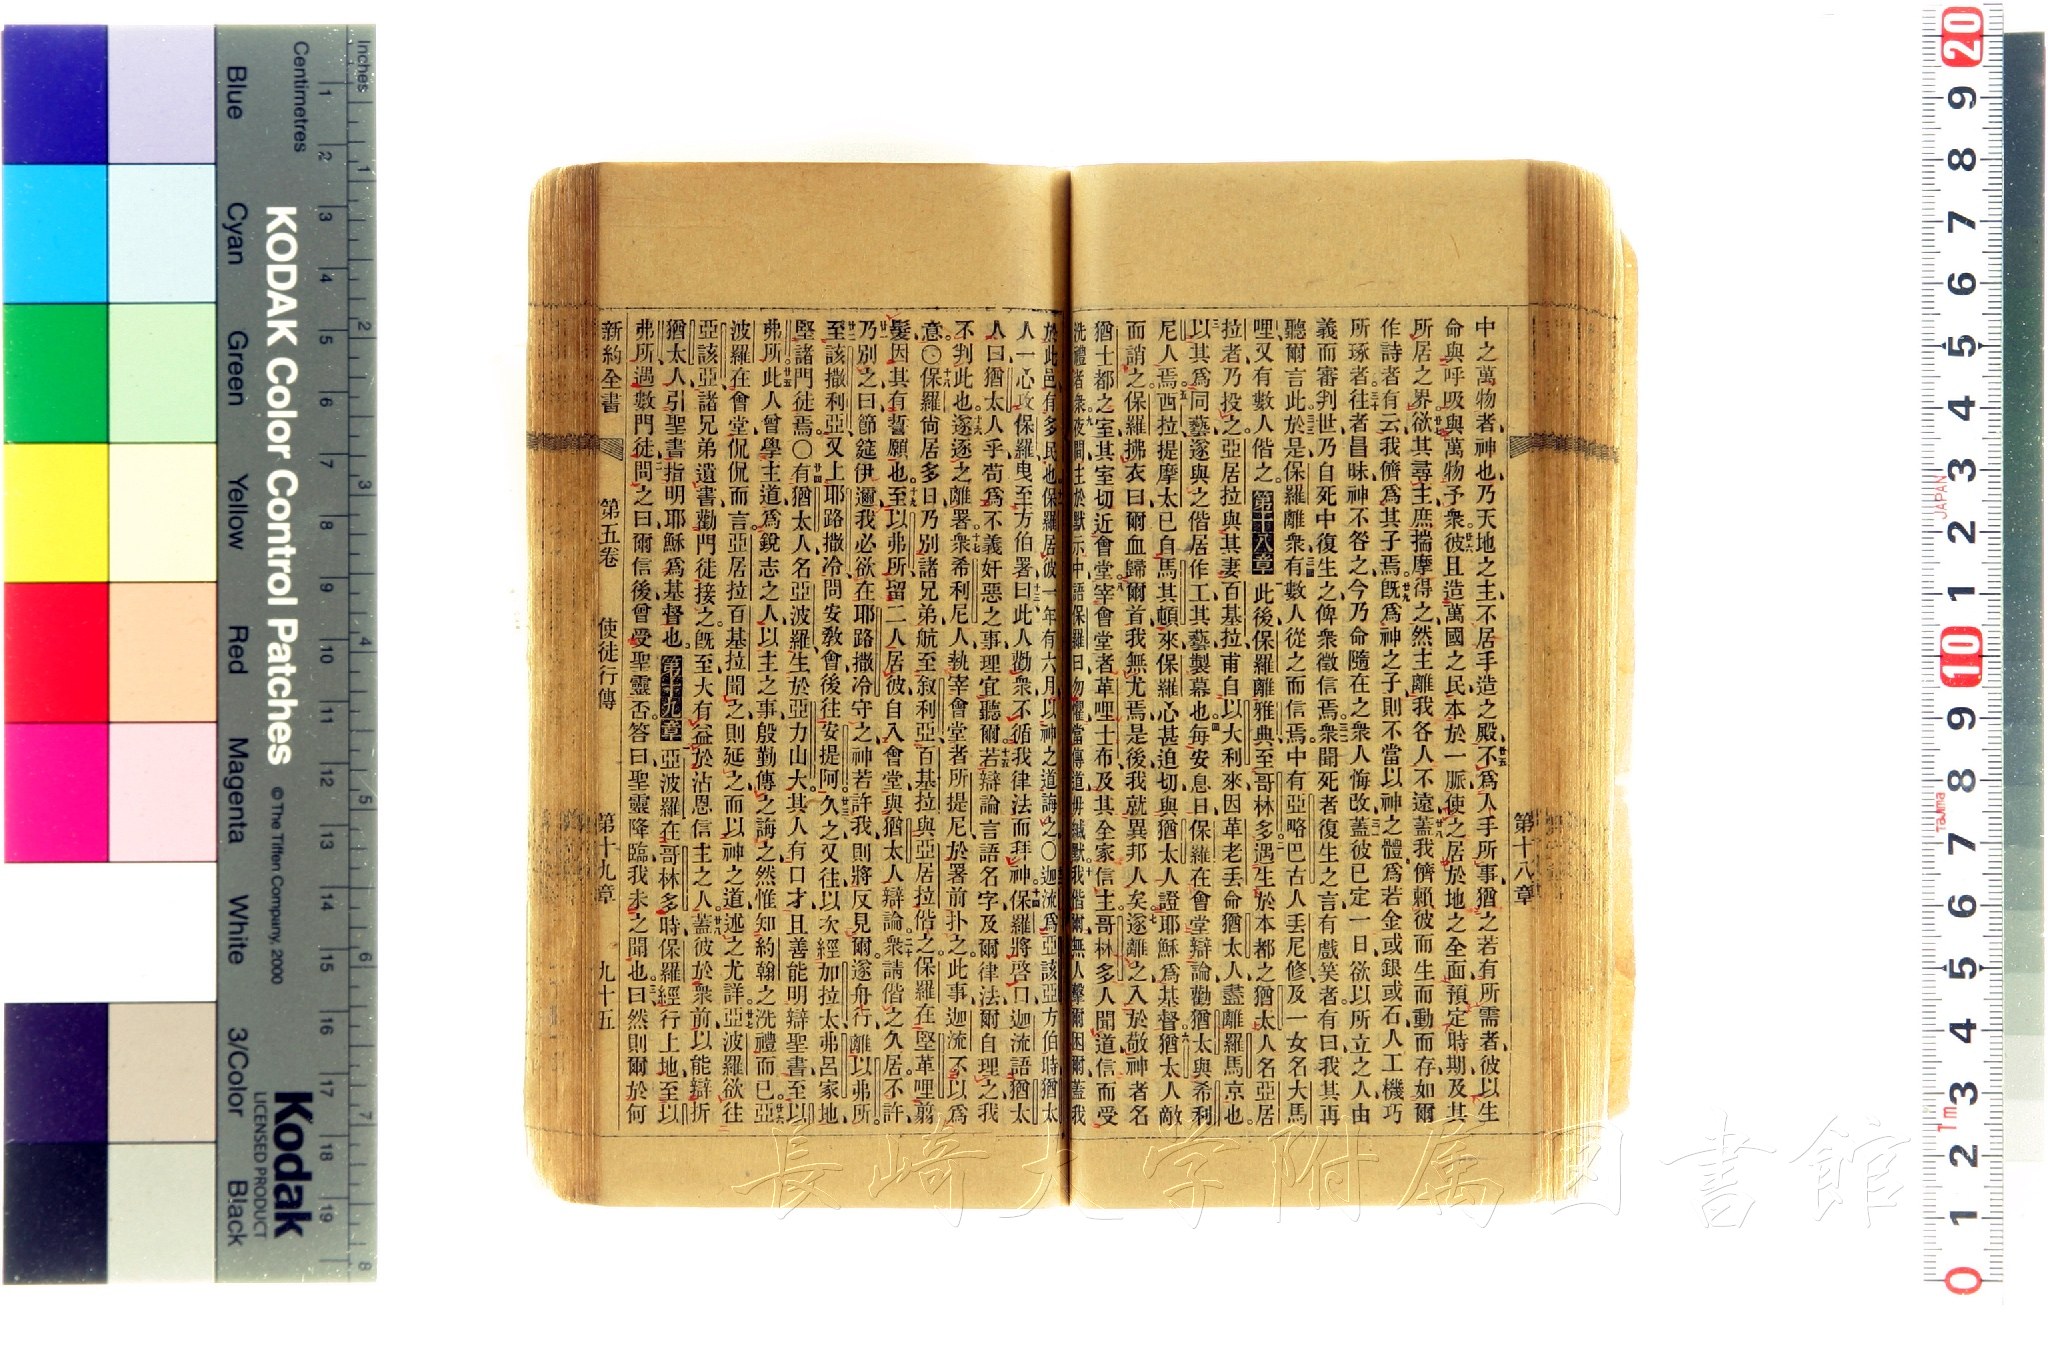 中之萬物者神也乃天地之主不居手造之殿不爲人手所事猶之若有所需者彼以生
命與呼吸與萬物予衆彼且造萬國之民本於一脈使之居於地之全面預定時期及其
所居之界欲其尋主庶揣摩得之然主離我各人不遠蓋我儕賴彼而生而動而存如爾
作詩者有云我儕爲其子焉旣爲神之子則不當以神之體爲若金或銀或石人工機巧
所琢者往者昌昧神不咎之今乃命隨在之衆人悔改蓋彼已定一日欲以所立之人由
義而審判世乃自死中復生之俾衆徵信焉衆聞死者復生之言有戲笑者有曰我其再
聽爾言此於是保羅離衆有數人從之而信焉中有亞略巴古人丟尼修及一女名大馬
哩又有數人偕之 第十八章 此後保羅離雅典至哥林多遇生於本都之猶太人名亞居
拉者乃投之亞居拉與其妻百基拉甫自以大利來因革老丟命猶太人盡離羅馬京也
以其爲同藝遂與之偕居作工其藝製幕也每安息日保羅在會堂辯論勸猶太與希利
尼人焉西拉提摩太已自馬其頓來保羅心甚迫切與猶太人證耶穌爲基督猶太人敵
而誚之保羅拂衣曰爾血歸爾首我無尤焉是後我就異邦人矣遂離之入於敬神者名
猶士都之室其室切近會堂宰會堂者革哩士布及其全家信主哥林多人聞道信而受
洗禮者衆夜間主於默示中語保羅曰勿懼當傳道毋緘默我偕爾無人擊爾困爾蓋我
於此邑有多民也保羅居彼一年有六月以神之道誨之〇迦流爲亞該亞方伯時猶太
人一心攻保羅曳至方伯署曰此人勸衆不循我律法而拜神保羅將啓口迦流語猶太
人曰猶太人乎苟爲不義奸惡之事理宜聽爾若辯論言語名字及爾律法爾自理之我
不判此也遂逐之離署衆希利尼人執宰會堂者所提尼於署前扑之此事迦流不以爲
意〇保羅尙居多日乃別諸兄弟航至敘利亞百基拉與亞居拉偕之保羅在堅革哩剪
髮因其有誓願也至以弗所留二人居彼自入會堂與猶太人辯論衆請偕之久居不許
乃別之曰節筵伊邇我必欲在耶路撒冷守之神若許我則將反見爾遂舟行離以弗所
至該撒利亞又上耶路撒冷問安敎會後往安提阿久之又往以次經加拉太弗呂家地
堅諸門徒焉〇有猶太人名亞波羅生於亞力山大其人有口才且善能明辯聖書至以
弗所此人曾學主道爲銳志之人以主之事殷勤傳之誨之然惟知約翰之洗禮而已亞
波羅在會堂侃侃而言亞居拉百基拉聞之則延之而以神之道述之尤詳亞波羅欲往
亞該亞諸兄弟遺書勸門徒接之旣至大有益於沾恩信主之人蓋彼於衆前以能辯折
猶太人引聖書指明耶穌爲基督也 第十九章 亞波羅在哥林多時保羅經行上地至以
弗所遇數門徒問之曰爾信後曾受聖靈否答曰聖靈降臨我未之聞也曰然則爾於何
新約全書 第五卷 使徒行傳 第十九章 九十五
第十八章
KODAK Color Control Patches
© The Tiffen Company, 2000
Kodak
LICENSED PRODUCT
Inches
Centimetres
Blue
Cyan
Green
Yellow
Red
Magenta
White
3/Color
Black
1 2 3 4 5 6 7 8 9 10 11 12 13 14 15 16 17 18 19
1 2 3 4 5 6 7 8
20 9 8 7 6 5 4 3 2 1 10 9 8 7 6 5 4 3 2 1 0
JAPAN
Tajima
長崎大学附属図書館